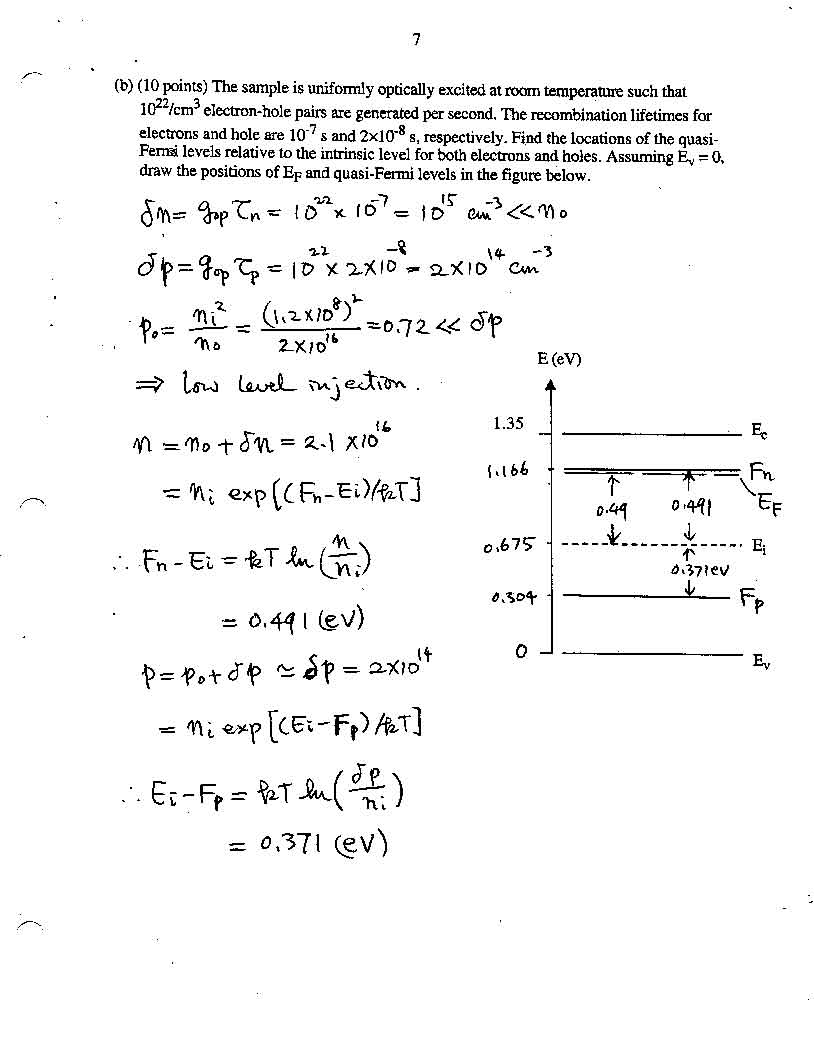 7
(b) (10 points) The sample is uniformly optically excited at room temperature such that
10²²/cm³ electron-hole pairs are generated per second. The recombination lifetimes for
electrons and hole are 10⁻⁷ s and 2×10⁻⁸ s, respectively. Find the locations of the quasi-
Fermi levels relative to the intrinsic level for both electrons and holes. Assuming Eᵥ = 0,
draw the positions of E_F and quasi-Fermi levels in the figure below.
δn = g_op τ_n = 10²² × 10⁻⁷ = 10¹⁵ cm⁻³ << n₀
δp = g_op τ_p = 10²² × 2×10⁻⁸ = 2×10¹⁴ cm⁻³
p₀ = nᵢ²/n₀ = (1.2×10⁸)²/2×10¹⁶ = 0.72 << δp
⇒ low level injection.
n = n₀ + δn = 2.1 ×10¹⁶
= nᵢ exp[(F_n-Eᵢ)/kT]
∴ F_n - Eᵢ = kT ln(n/nᵢ)
= 0.491 (eV)
p = p₀ + δp ≃ δp = 2×10¹⁴
= nᵢ exp[(Eᵢ-F_p)/kT]
∴ Eᵢ-F_p = kT ln(δp/nᵢ)
= 0.371 (eV)
E (eV)
1.35 E_c
1.166 F_n
E_F
0.49 0.491
0.675 Eᵢ
0.371eV
0.304 F_p
0 Eᵥ